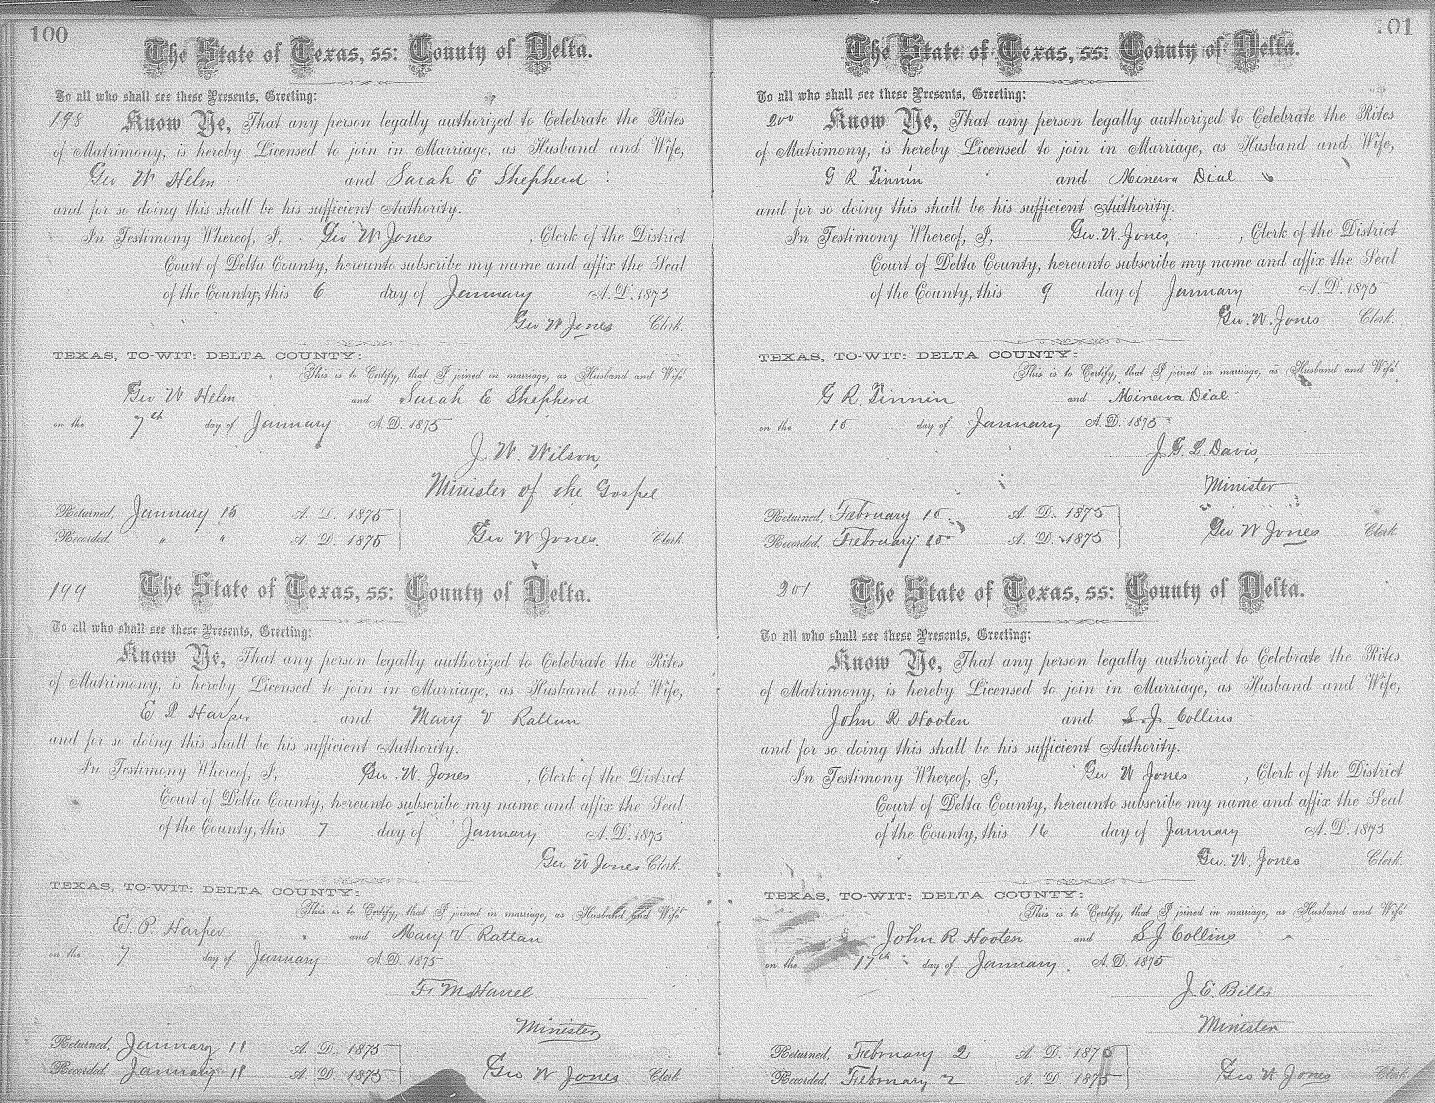 100
The State of Texas, ss: County of Delta.
To all who shall see these Presents, Greeting:
198 Know Ye, That any person legally authorized to Celebrate the Rites
of Matrimony, is hereby Licensed to join in Marriage, as Husband and Wife,
Geo W Helm and Sarah E Shepherd
and for so doing this shall be his sufficient Authority.
In Testimony Whereof, I, Geo W Jones, Clerk of the District
Court of Delta County, hereunto subscribe my name and affix the Seal
of the County, this 6 day of January A. D. 1875
Geo W Jones Clerk.
TEXAS, TO-WIT: DELTA COUNTY:
This is to Certify, that I joined in marriage, as Husband and Wife
Geo W Helm and Sarah E Shepherd
on the 7th day of January A. D. 1875
J. W. Wilson,
Minister of the Gospel
Returned, January 15 A. D. 1875
Recorded, " " A. D. 1875 Geo W Jones Clerk
199 The State of Texas, ss: County of Delta.
To all who shall see these Presents, Greeting:
Know Ye, That any person legally authorized to Celebrate the Rites
of Matrimony, is hereby Licensed to join in Marriage, as Husband and Wife,
E P Harper and Mary V Rattan
and for so doing this shall be his sufficient Authority.
In Testimony Whereof, I, Geo. W. Jones, Clerk of the District
Court of Delta County, hereunto subscribe my name and affix the Seal
of the County, this 7 day of January A. D. 1875
Geo W Jones Clerk.
TEXAS, TO-WIT: DELTA COUNTY:
This is to Certify, that I joined in marriage, as Husband and Wife
E. P. Harper and Mary V Rattan
on the 7 day of January A. D. 1875
Minister
Returned, January 11 A. D. 1875
Recorded, January 11 A. D. 1875 Geo W Jones Clerk
101
The State of Texas, ss: County of Delta.
To all who shall see these Presents, Greeting:
200 Know Ye, That any person legally authorized to Celebrate the Rites
of Matrimony, is hereby Licensed to join in Marriage, as Husband and Wife,
G R Finnin and Minerva Dial
and for so doing this shall be his sufficient Authority.
In Testimony Whereof, I, Geo. W. Jones, Clerk of the District
Court of Delta County, hereunto subscribe my name and affix the Seal
of the County, this 9 day of January A. D. 1875
Geo. W. Jones Clerk.
TEXAS, TO-WIT: DELTA COUNTY:
This is to Certify, that I joined in marriage, as Husband and Wife
G R. Finnin and Minerva Dial
on the 10 day of January A. D. 1875
Davis,
Minister
Returned, February 10 A. D. 1875
Recorded, February 10 A. D. 1875 Geo W Jones Clerk
201 The State of Texas, ss: County of Delta.
To all who shall see these Presents, Greeting:
Know Ye, That any person legally authorized to Celebrate the Rites
of Matrimony, is hereby Licensed to join in Marriage, as Husband and Wife,
John R Hooten and S. J. Collins
and for so doing this shall be his sufficient Authority.
In Testimony Whereof, I, Geo W Jones, Clerk of the District
Court of Delta County, hereunto subscribe my name and affix the Seal
of the County, this 16 day of January A. D. 1875
Geo. W. Jones Clerk.
TEXAS, TO-WIT: DELTA COUNTY:
This is to Certify, that I joined in marriage, as Husband and Wife
John R Hooten and S J Collins
on the 17th day of January A. D. 1875
J. E. Bills
Minister
Returned, February 2 A. D. 1875
Recorded, February 2 A. D. 1875 Geo W Jones Clerk